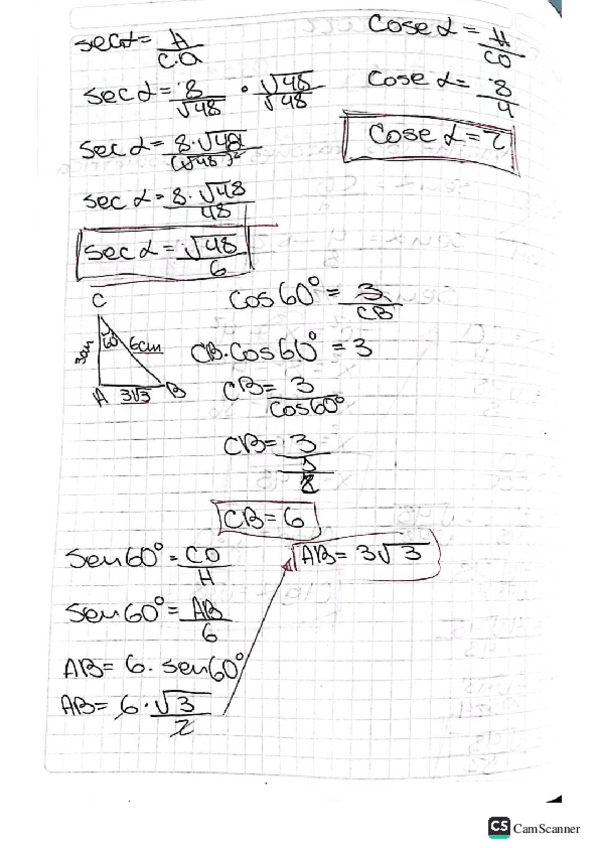 sec α = H / C.A
sec α = 8 / √48 · √48 / √48
sec α = 8·√48 / (√48)²
sec α = 8·√48 / 48
sec α = √48 / 6
Cosc α = H / CO
Cosc α = 8 / 4
Cosc α = 2
C
60°
3cm
6cm
A 3√3 B
Cos60° = 3 / CB
CB·Cos60° = 3
CB = 3 / Cos60°
CB = 3 / 1 / 2
CB = 6
Sen60° = CO / H
Sen60° = AB / 6
AB = 6 · sen60°
AB = 6 · √3 / 2
AB = 3√3
CS CamScanner